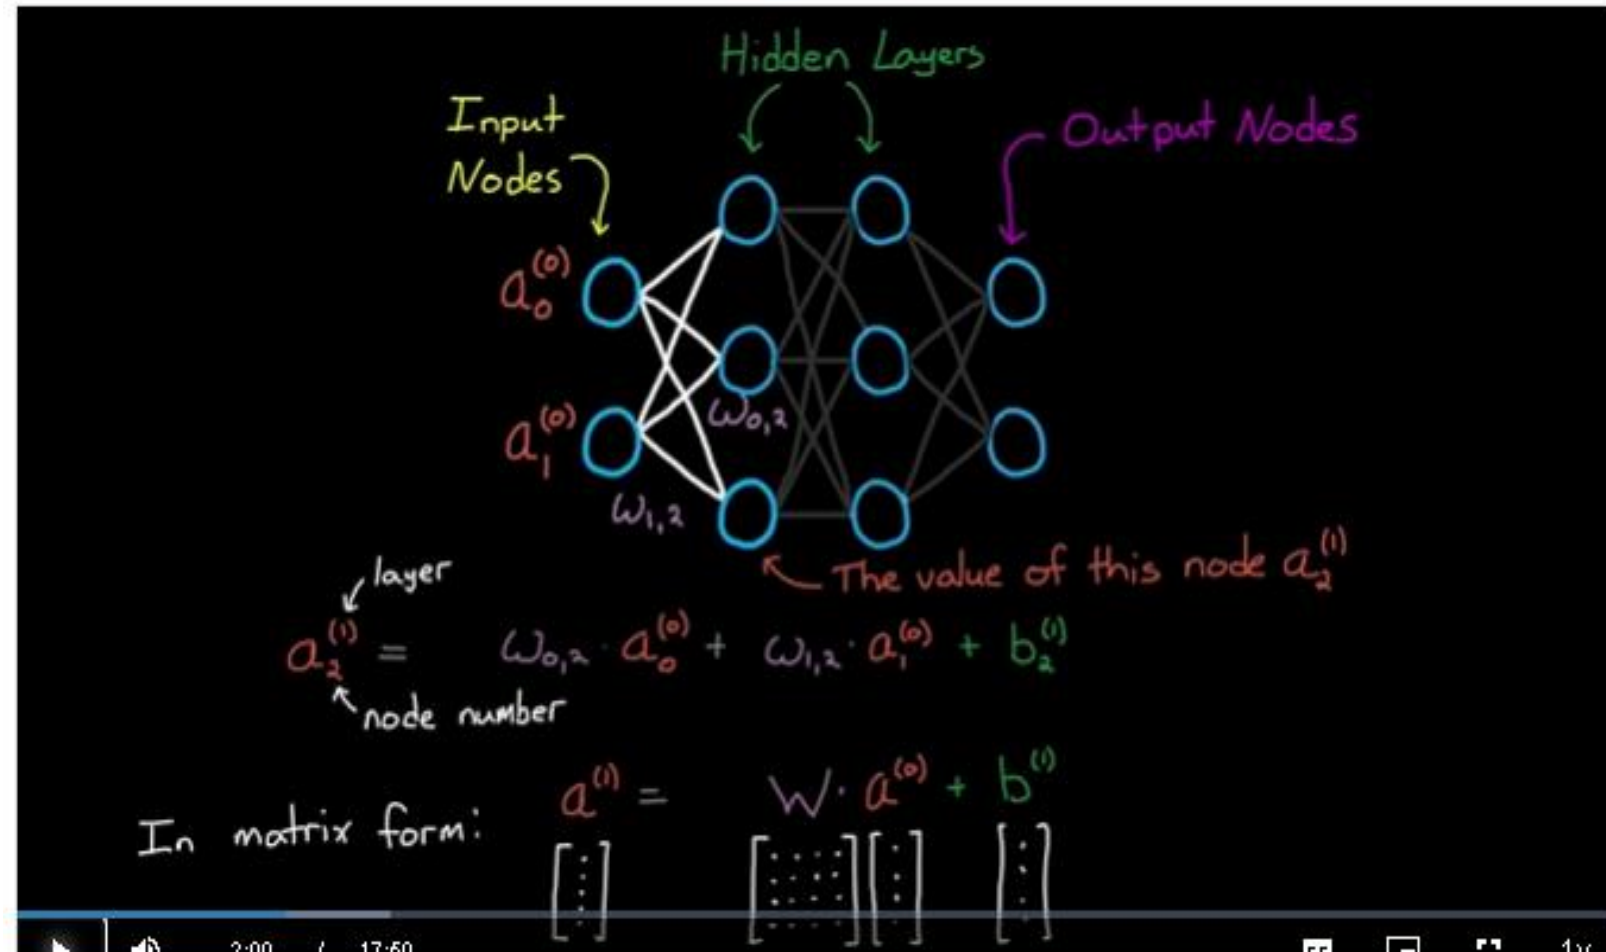 Hidden Layers
Input
Nodes
Output Nodes
a₀⁽⁰⁾
a₁⁽⁰⁾
ω₀,₂
ω₁,₂
The value of this node a₂⁽¹⁾
layer
a₂⁽¹⁾ = ω₀,₂ · a₀⁽⁰⁾ + ω₁,₂ · a₁⁽⁰⁾ + b₂⁽¹⁾
node number
a⁽¹⁾ = W · a⁽⁰⁾ + b⁽¹⁾
In matrix form:
2:00 / 17:50